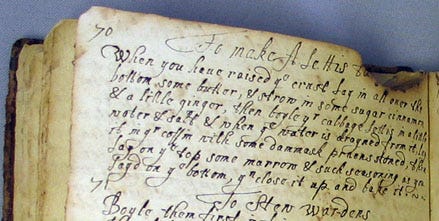 70 To make A Lettis ta
When you have raised ye crust lay in all over the
bottom some butter, & strow in some sugar cinnamon
& a little ginger, then boyle yr cabbage Lettis in a little
water & salt & when ye water is drayned from it lay
it in yr coffin with some dammask pruens stoned, then
lay on ye top some marrow & such seasoning as you
layd on ye bottom, yn close it up and bake it
71 To Stew Wardens
Boyle them first in